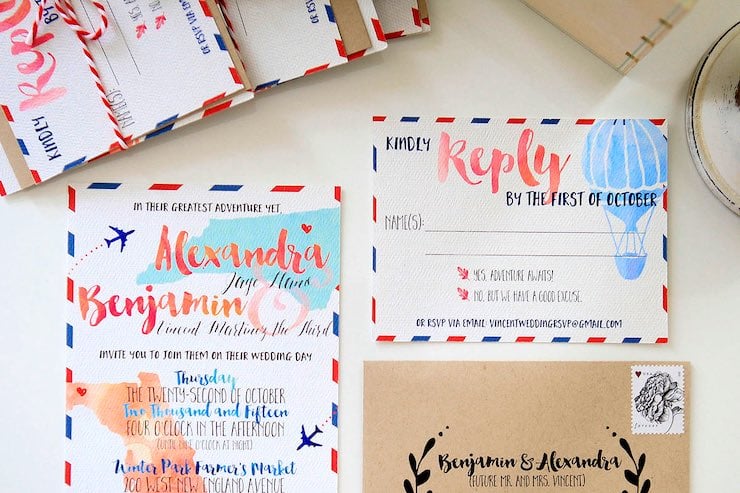 KINDLY Reply BY
NAME(S):
OR RSVP VIA
KINDLY Reply
BY THE FIRST OF OCTOBER
NAME(S):
YES, ADVENTURE AWAITS!
NO, BUT WE HAVE A GOOD EXCUSE.
OR RSVP VIA EMAIL: VINCENTWEDDINGRSVP@GMAIL.COM
IN THEIR GREATEST ADVENTURE YET,
Alexandra
&
Benjamin
Vincent Martinez the Third
INVITE YOU TO JOIN THEM ON THEIR WEDDING DAY
Thursday
THE TWENTY-SECOND OF OCTOBER
Two Thousand and Fifteen
FOUR O'CLOCK IN THE AFTERNOON
(UNTIL NINE O'CLOCK AT NIGHT)
Winter Park Farmer's Market
200 WEST NEW ENGLAND AVENUE
forever
Benjamin & Alexandra
(FUTURE MR. AND MRS. VINCENT)